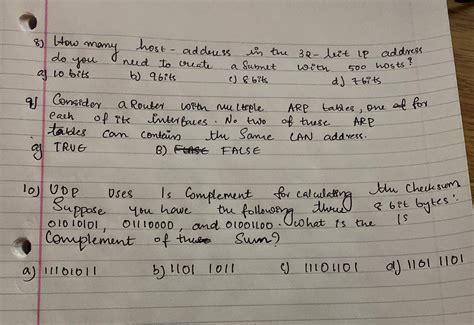 8) How many host-address in the 32-bit IP address
do you need to create a subnet with 500 hosts?
a) 10 bits b) 9 bits c) 8 bits d) 7 bits
9) Consider a Router with multiple ARP tables, one of for
each of its interfaces. No two of these ARP
tables can contain the Same LAN address.
a) TRUE B) FALSE
10) UDP Uses 1s Complement for calculating the Checksum
Suppose you have the following three 8 bit bytes:
01010101, 01110000, and 01001100. What is the 1s
Complement of these Sum?
a) 11101011 b) 1101 1011 c) 11101101 d) 1101 1101